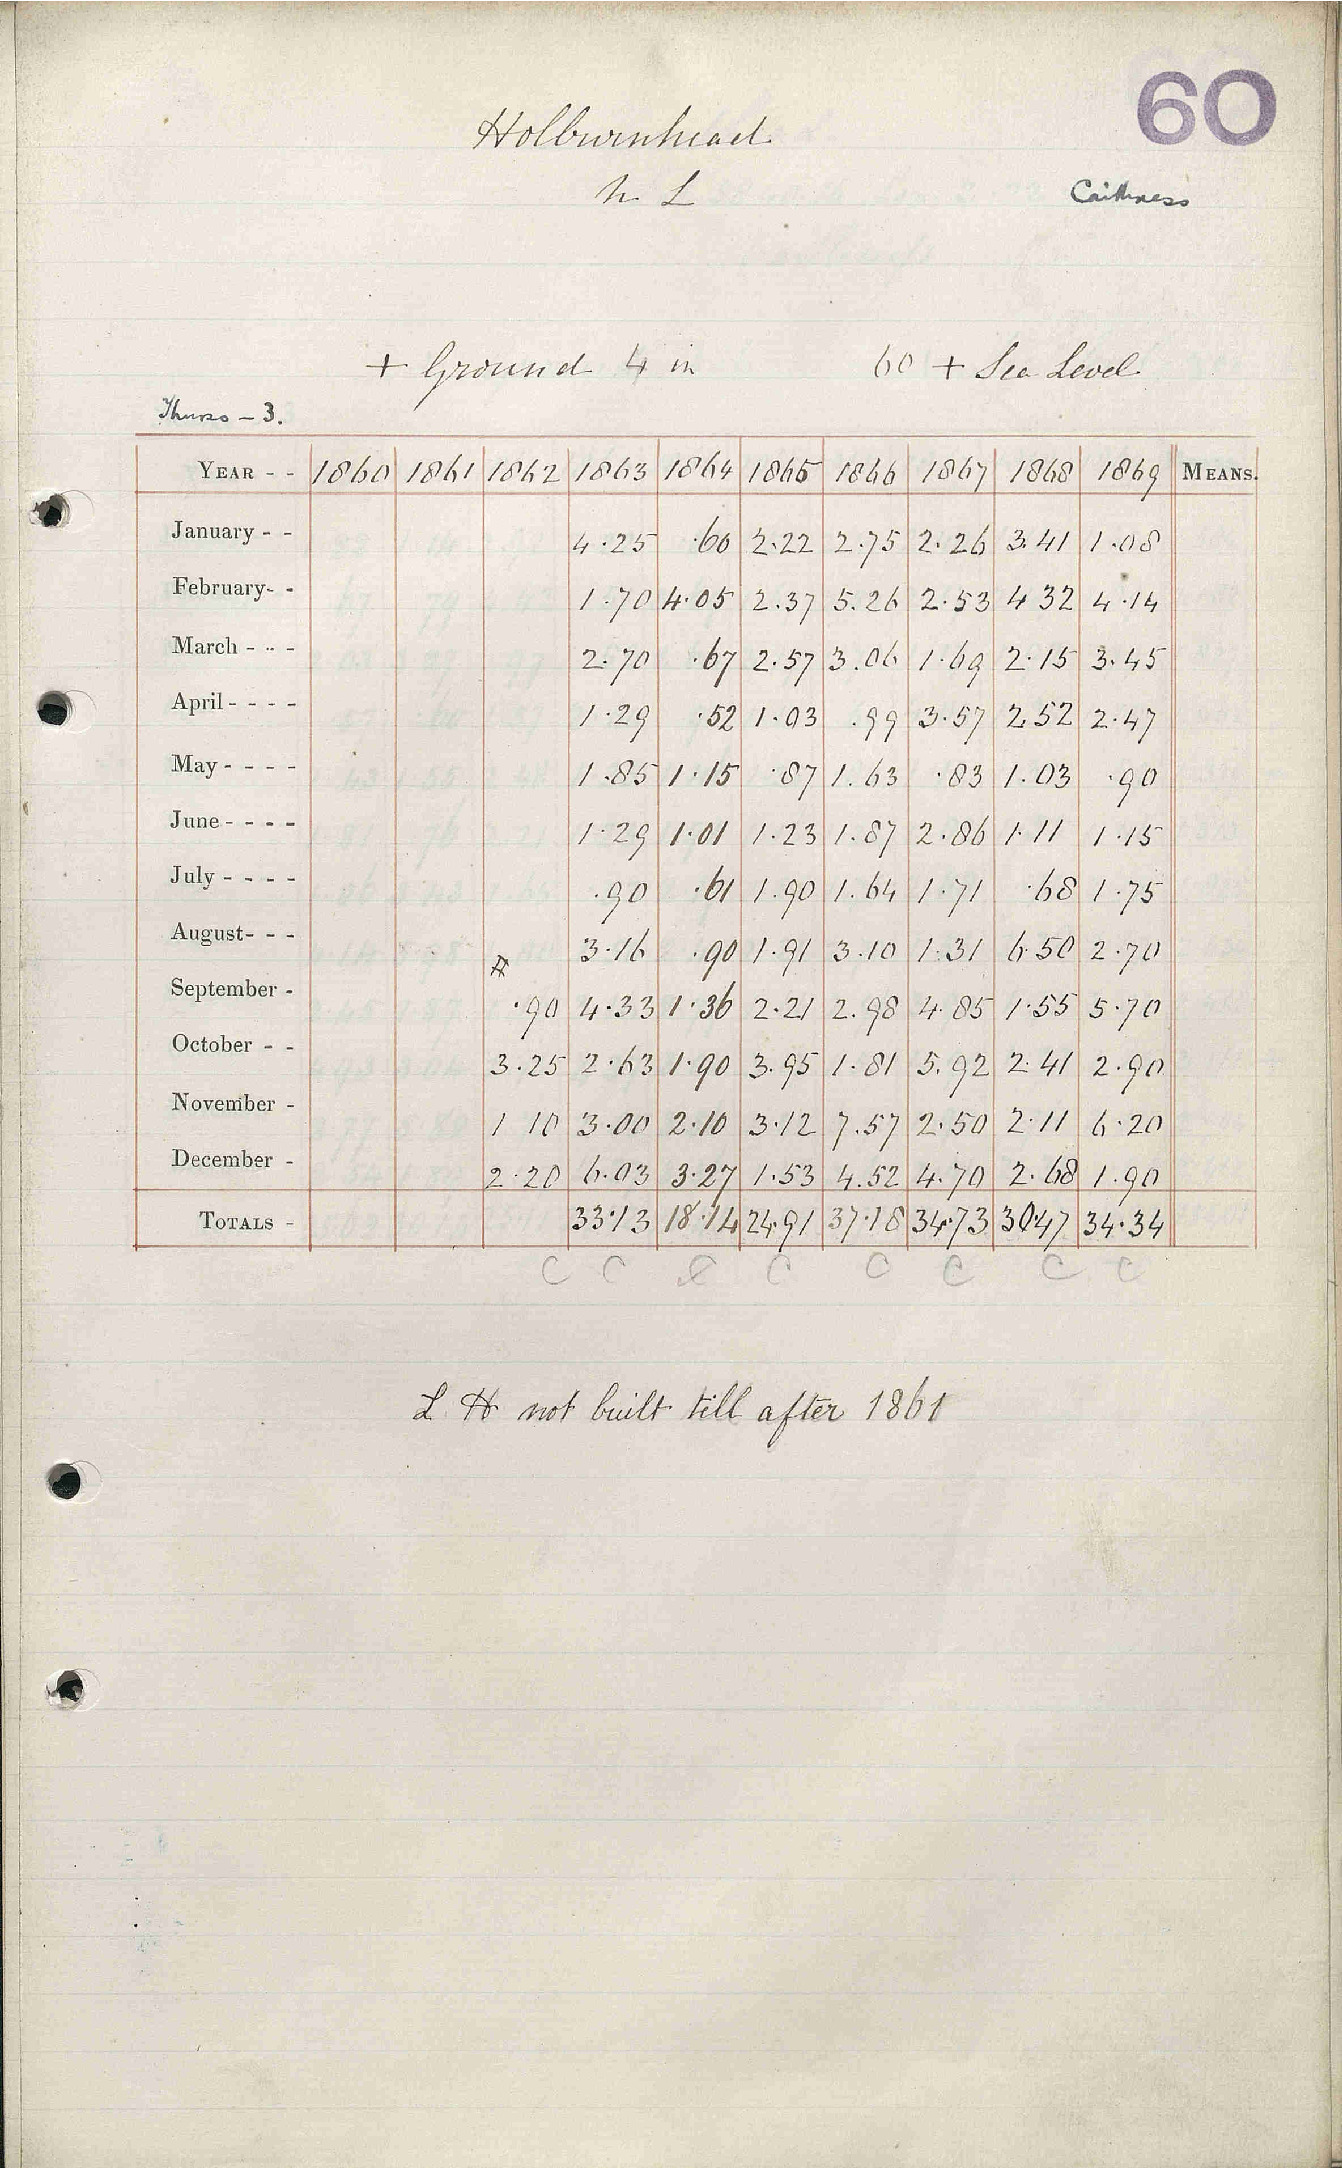 60
Holburnhead
h L
Caithness
+ Ground 4 in 60 + Sea Level
Thurso - 3.
YEAR - - 1860 1861 1862 1863 1864 1865 1866 1867 1868 1869 MEANS.
January - - 4.25 .60 2.22 2.75 2.26 3.41 1.08
February - - 1.70 4.05 2.37 5.26 2.53 4 32 4.14
March - - - 2.70 .67 2.57 3.06 1.69 2.15 3.45
April - - - - 1.29 .52 1.03 .99 3.57 2.52 2.47
May - - - - 1.85 1.15 .87 1.63 .83 1.03 .90
June - - - - 1.29 1.01 1.23 1.87 2.86 1.11 1.15
July - - - - .90 .61 1.90 1.64 1.71 .68 1.75
August - - - 3.16 .90 1.91 3.10 1.31 6.50 2.70
September - .90 4.33 1.36 2.21 2.98 4.85 1.55 5.70
October - - 3.25 2.63 1.90 3.95 1.81 5.92 2.41 2.90
November - 1 10 3.00 2.10 3.12 7.57 2.50 2.11 6.20
December - 2.20 6.03 3.27 1.53 4.52 4.70 2.68 1.90
TOTALS - 33.13 18.14 24.91 37.18 34.73 30.47 34.34
C C C C C C C C
L H not built till after 1861